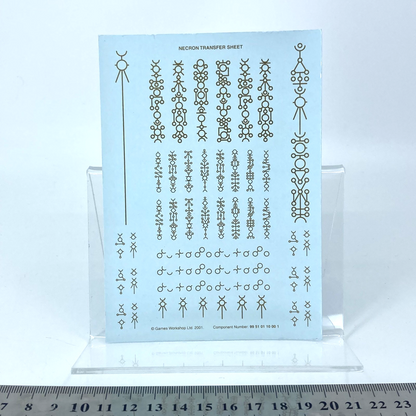 NECRON TRANSFER SHEET
© Games Workshop Ltd. 2001. Component Number: 99 51 01 10 00 1
7 8 9 10 11 12 13 14 15 16 17 18 19 20 21 22 23